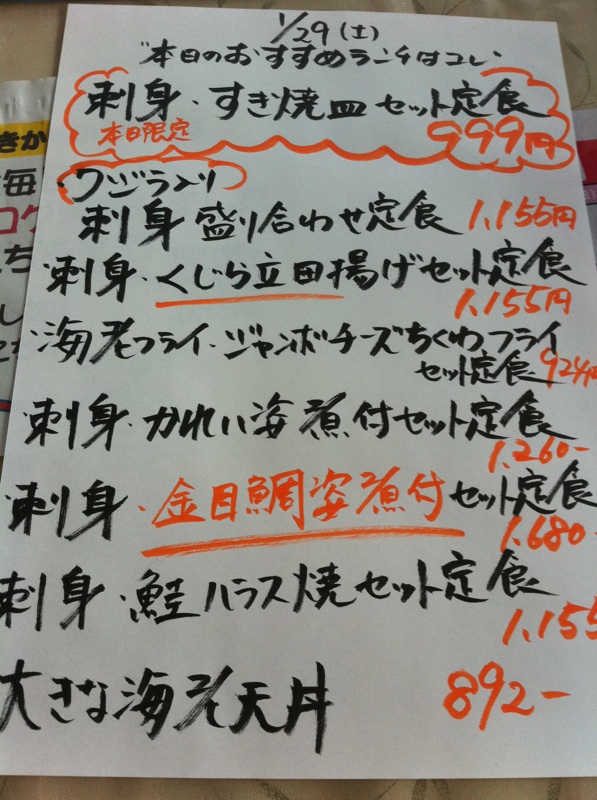 1/29(土)
"本日のおすすめランチはコレ"
刺身・すき焼皿セット定食
本日限定 999円
・クジラ入り
刺身盛り合わせ定食 1,155円
・刺身・くじら立田揚げセット定食
1,155円
・海老フライ・ジャンボチーズちくわフライ
セット定食 924円
・刺身・かれい姿煮付セット定食
1,260-
・刺身・金目鯛姿煮付セット定食
1,680-
刺身・鮭ハラス焼セット定食
1,155
大きな海老天丼 892-
きか
毎
コク
ち
し